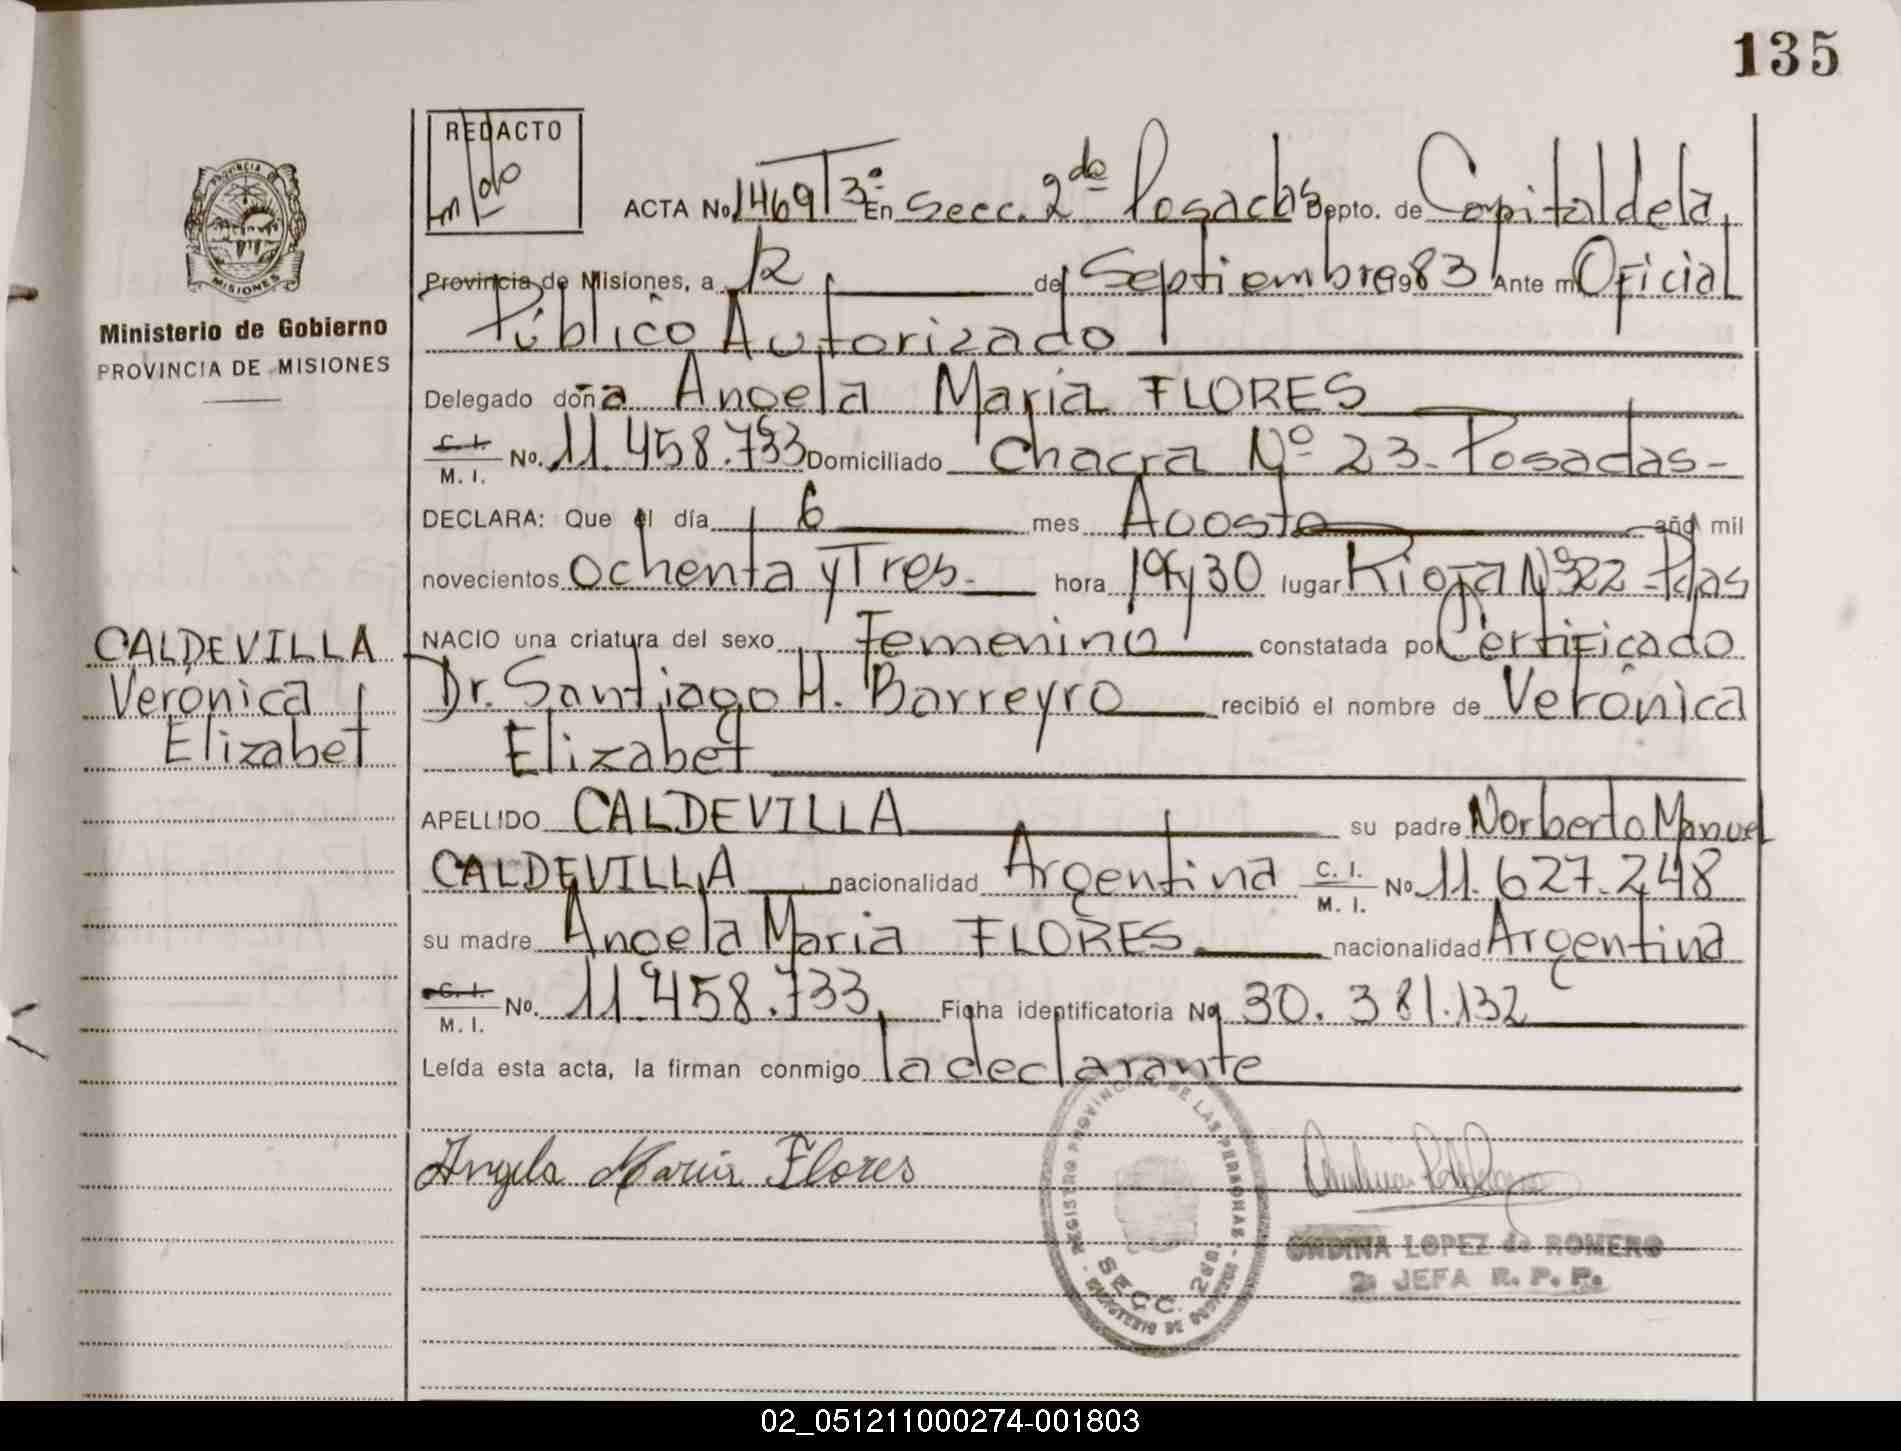 135
REDACTO
ACTA No 1469 T 3º En Secc. 2da Posadas Depto. de Capital de la
Provincia de Misiones, a 12 de Septiembre 1983 Ante mi Oficial
Público Autorizado
PROVINCIA DE MISIONES
Ministerio de Gobierno
PROVINCIA DE MISIONES
Delegado doña Angela Maria FLORES
C. I. M. I. No. 11.458.733 Domiciliado Chacra Nº 23 - Posadas -
DECLARA: Que el día 6 mes Agosto año mil
novecientos ochenta y Tres - hora 19 y 30 lugar Rioja Nº 322 - Pdas
NACIO una criatura del sexo Femenino constatada por Certificado
Dr. Santiago H. Barreyro recibió el nombre de Verónica
Elizabet
CALDEVILLA
Verónica
Elizabet
APELLIDO CALDEVILLA su padre Norberto Manuel
CALDEVILLA nacionalidad Argentina C. I. M. I. No 11.627.248
su madre Angela Maria FLORES nacionalidad Argentina
C. I. M. I. No. 11.458.733 Ficha identificatoria No 30.381.132
Leída esta acta, la firman conmigo la declarante
Angela Maria Flores
REGISTRO PROVINCIAL DE LAS PERSONAS - MINISTERIO DE GOBIERNO -
SECC. 2da.
ONDINA LOPEZ de ROMERO
2a JEFA R. P. P.
02_051211000274-001803